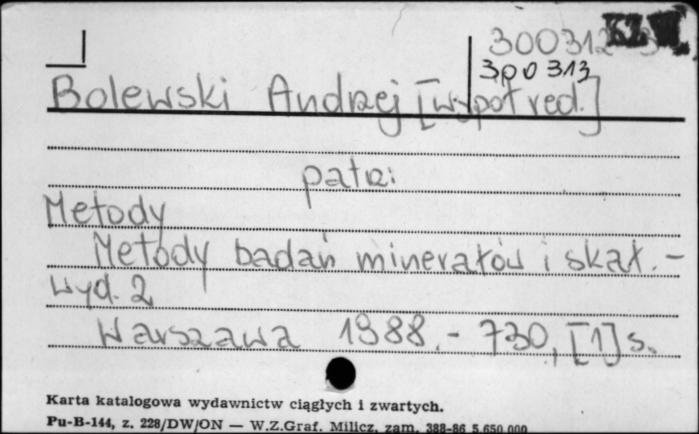 300312
300313
Bolewski Andrzej [współred.]
patrz:
Metody
Metody badań minerałów i skał. -
wyd. 2
Warszawa 1988. - 730, [1] s.
Karta katalogowa wydawnictw ciągłych i zwartych.
Pu-B-144, z. 228/DW/ON — W.Z.Graf. Milicz, zam. 388-86 5.650.000